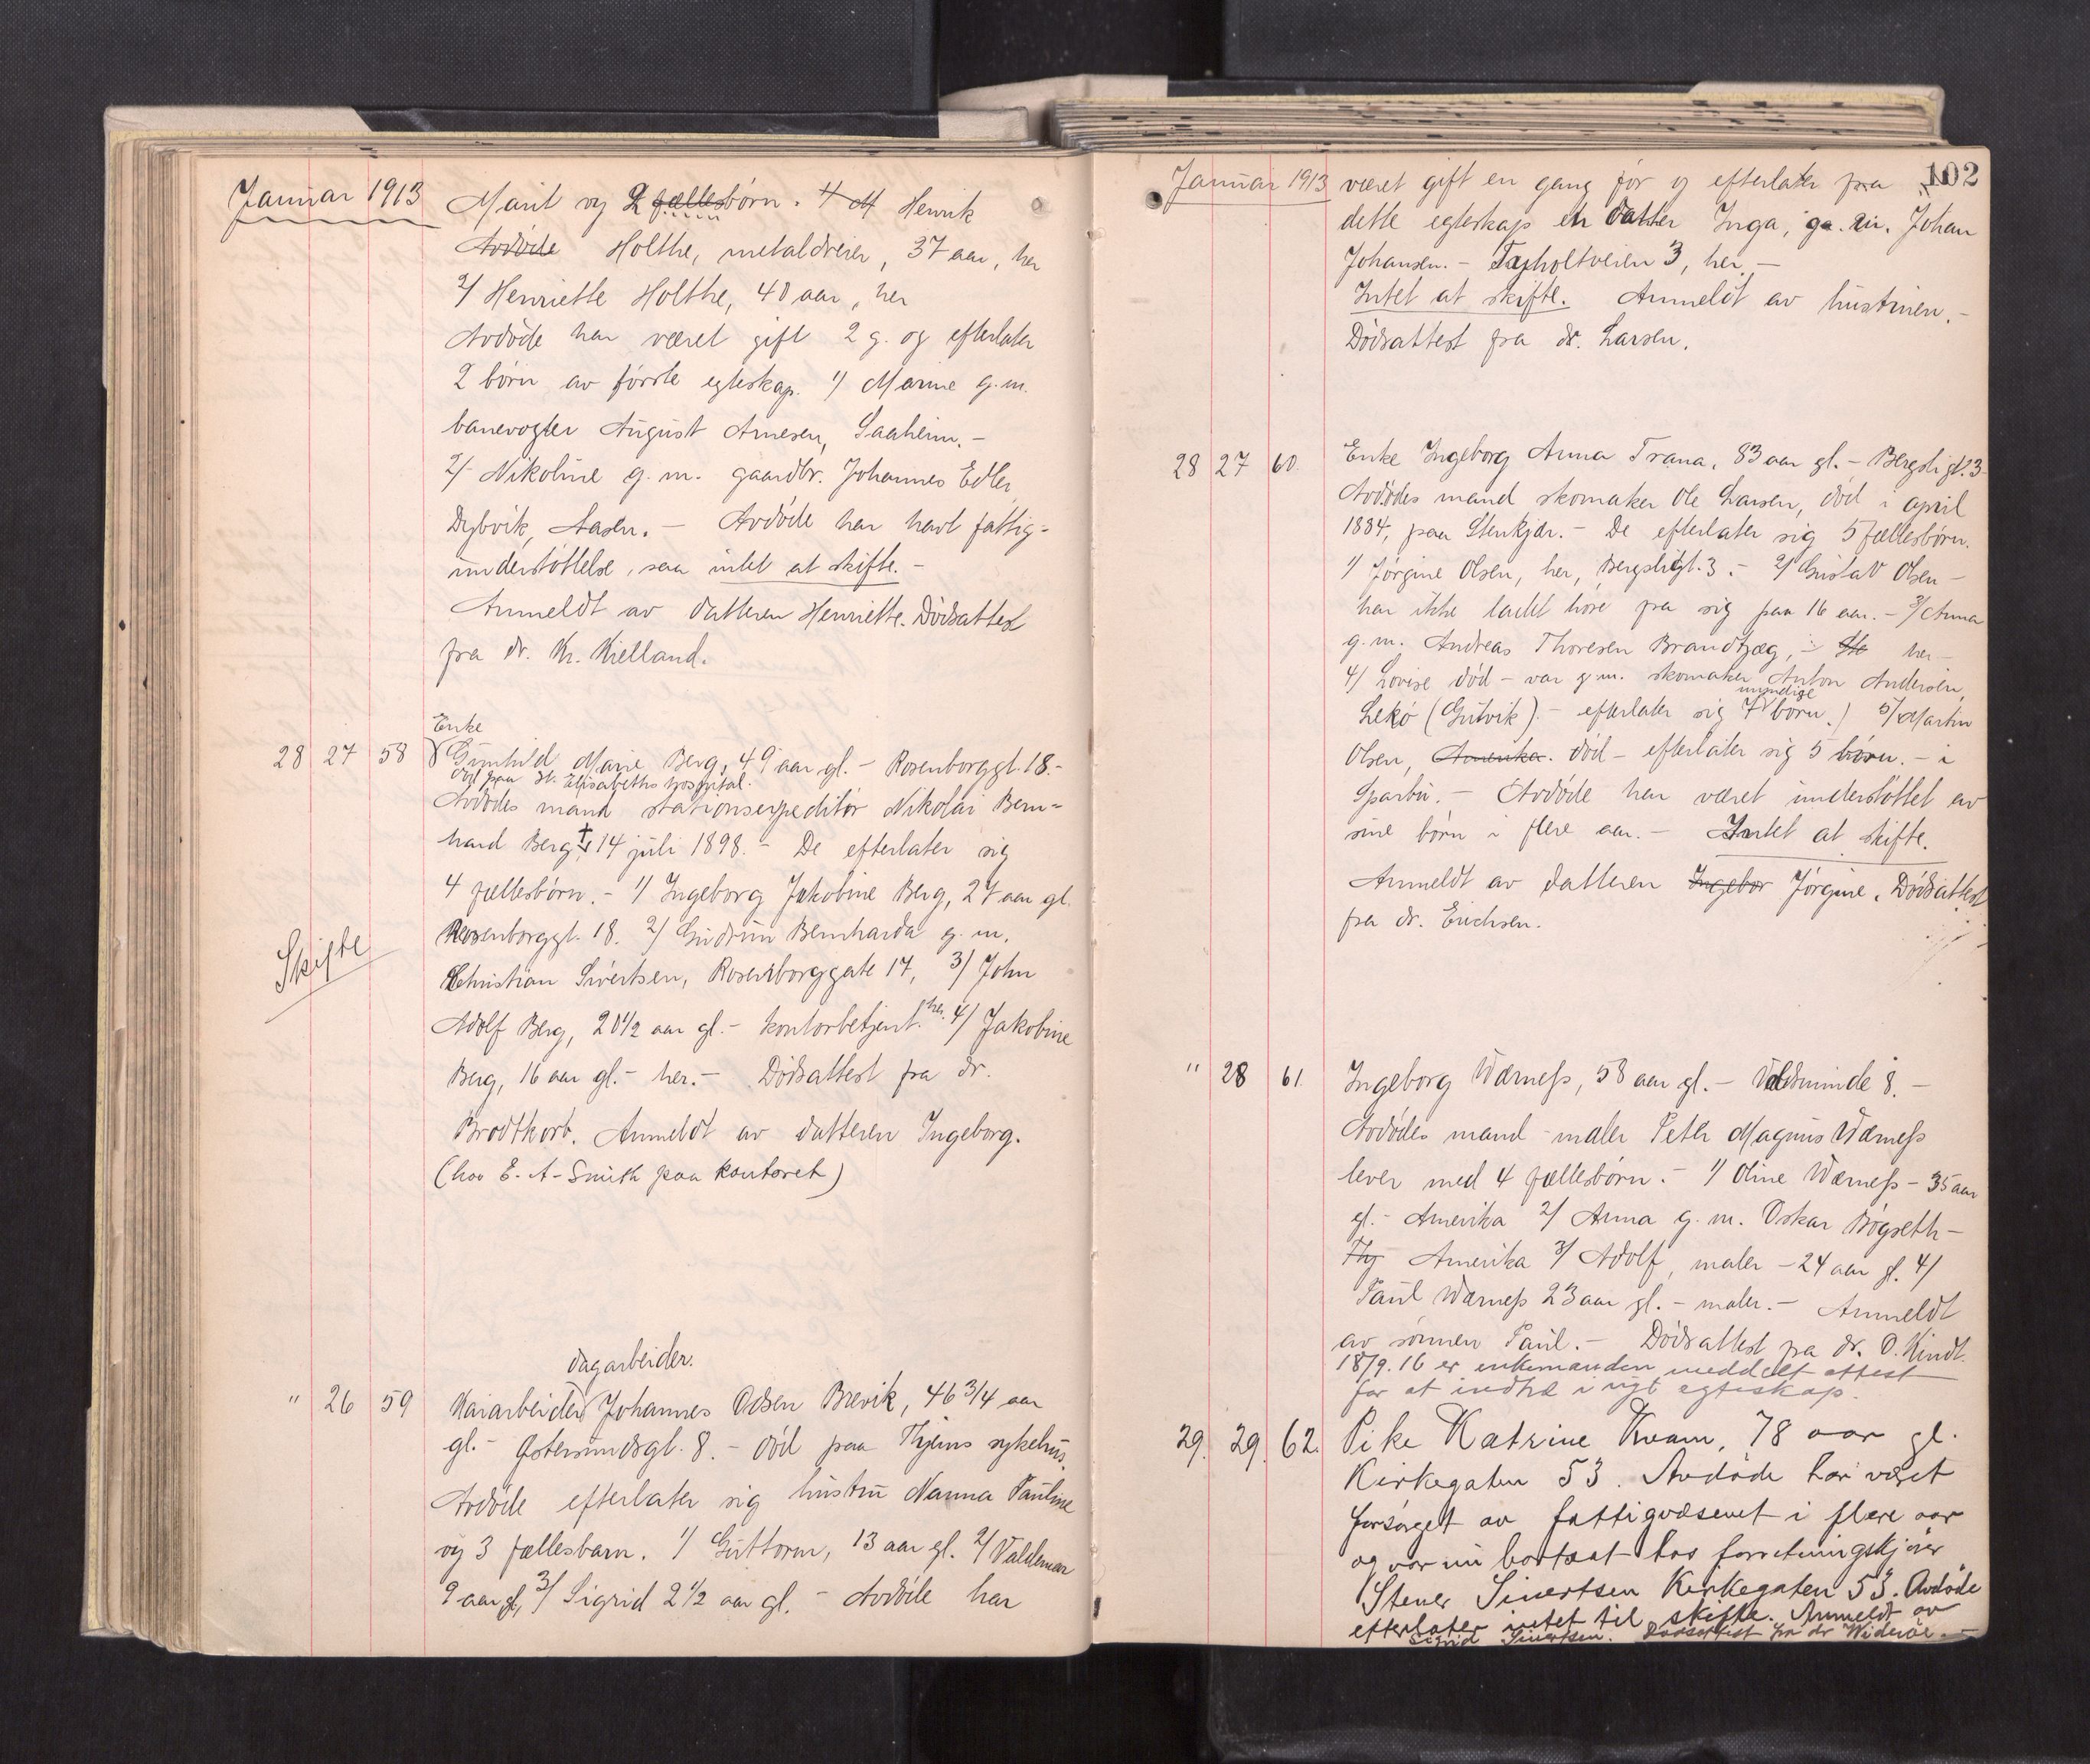 Januar 1913
Marit og 2 fællesbørn. 1/ M Henrik
Avdøde Holthe, metaldreier, 37 aar, her
2/ Henriette Holthe, 40 aar, her
Avdøde har været gift 2 g. og efterlater
2 børn av første egteskap. 1/ Marine g.m.
banevogter August Arnesen, Saaheim. -
2/ Nikoline g. m. gaardbr. Johannes Edler
Dybvik, Aasen. - Avdøde har havt fattig-
understøttelse, saa intet at skifte. -
Anmeldt av datteren Henriette. Dødsattest
fra dr. Kr. Kielland.
Enke
28 27 58 Gunhild Marie Berg, 49 aar gl. - Rosenborggt. 18. -
død paa St. Elisabeths hospital.
Avdødes mand stationsexpeditør Nikolai Bern-
hard Berg † 14 juli 1898. - De efterlater sig
4 fællesbørn. - 1/ Ingeborg Jakobine Berg, 27 aar gl.
Rosenborggt. 18. 2/ Gudrun Bernharda g. m.
Skifte
Christian Sivertsen, Rosenborggate 17, 3/ John
Adolf Berg, 20 1/2 aar gl. - kontorbetjent. her. 4/ Jakobine
Berg, 16 aar gl. - her. - Dødsattest fra dr.
Brodtkorb. Anmeldt av datteren Ingeborg.
(hos E. A. Smith paa kontoret)
dagarbeider.
" 26 59 Johannes Odsen Brevik, 46 3/4 aar
gl. - Østersundsgt. 8. - død paa Thjems sykehus.
Avdøde efterlater sig hustru Nanna Pauline
og 3 fællesbarn. 1/ Guttorm, 13 aar gl. 2/ Valdemar
9 aar gl, 3/ Sigrid 2 1/2 aar gl. - Avdøde har
102
Januar 1913 været gift en gang før og efterlater fra
dette egteskap en datter Inga, g. m. Johan
Johansen. - Tyholtveien 3, her. -
Intet at skifte. Anmeldt av hustruen. -
Dødsattest fra dr. Larsen.
28 27 60. Enke Ingeborg Anna Trana, 83 aar gl. - Bergsligt. 3
Avdødes mand skomaker Ole Larsen, død i april
1884, paa Stenkjær. - De efterlater sig 5 fællesbørn.
1/ Jørgine Olsen, her, Bergsligt. 3. - 2/ Gustav Olsen -
har ikke ladet høre fra sig paa 16 aar. - 3/ Anna
g. m. Andreas Thoresen Brandtzæg, - Ste her -
4/ Lovise død - var g m. skomaker Anton Andersen,
myndige
Lekø (Gutvik). - efterlater sig 7 børn.) 5/ Martin
Olsen, Amerika. død - efterlater sig 5 børn. - i
Sparbu. - Avdøde har været understøttet av
sine børn i flere aar. - Intet at skifte.
Anmeldt av datteren Ingebor Jørgine. Dødsattest
fra dr. Erichsen.
" 28 61. Ingeborg Værness, 58 aar gl. - Voldsminde 8. -
Avdødes mand - maler Peter Magnus Værness
lever med 4 fællesbørn. - 1/ Oline Værness - 35 aar
gl. - Amerika 2/ Anna g. m. Oskar Bøgseth -
Thj Amerika 3/ Adolf, maler - 24 aar gl. 4/
Paul Værness 23 aar gl. - maler. - Anmeldt
av sønnen Paul. - Dødsattest fra dr. O. Kindt.
18/9. 16 er enkemanden meddelt attest
for at indtræ i nyt egteskap.
29. 29. 62. Pike Katrine Kvam, 78 aar gl.
Kirkegaten 53. Avdøde har været
forsørget av fattigvæsenet i flere aar
og var nu bortsat hos forretningskjører
Stener Sivertsen Kirkegaten 53. Avdøde
efterlater intet til skifte. Anmeldt av
Sigrid Sivertsen. Dødsattest fra dr Widerøe. -